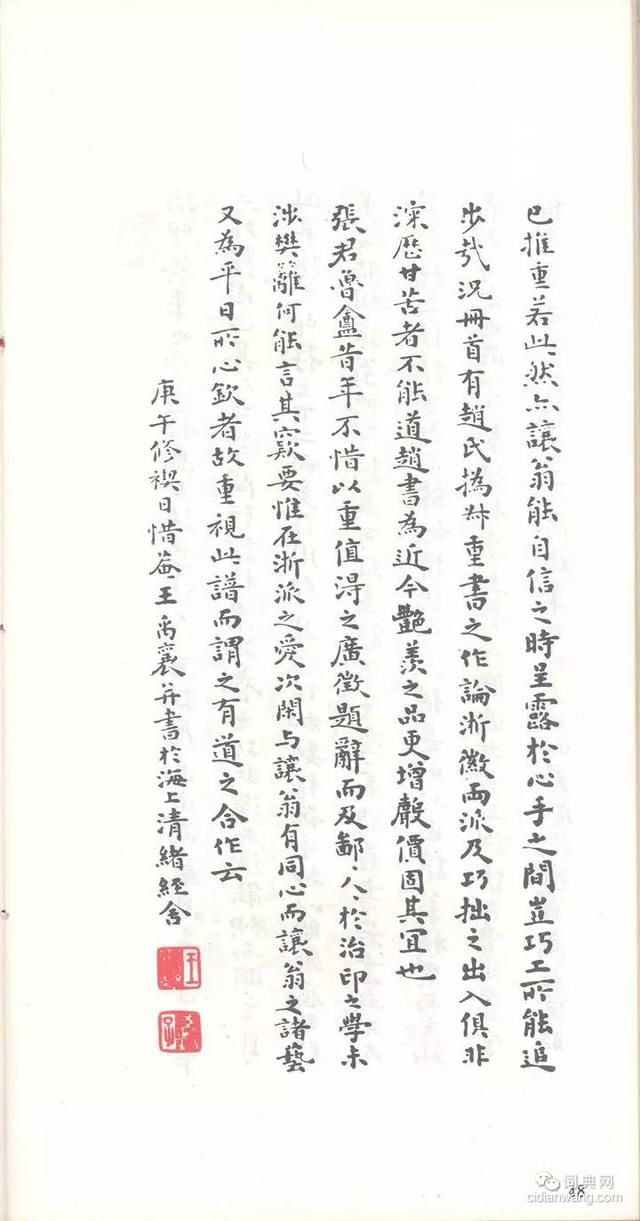 已推重若此然亦讓翁能自信之時呈露於心手之間豈巧工所能追
步哉況冊首有趙氏撝叔重書之作論浙徽兩派及巧拙之出入俱非
深歷甘苦者不能道趙書為近今艷羨之品更增聲價固其宜也
張君魯盦昔年不惜以重值得之廣徵題辭而及鄙人人於治印之學未
涉樊籬何能言其竅要惟在浙派之愛次閑与讓翁有同心而讓翁之諸藝
又為平日所心欽者故重視此譜而謂之有道之合作云
庚午修禊日惜菴王禹襄并書於海上清緒經舍
词典网
cidianwang.com